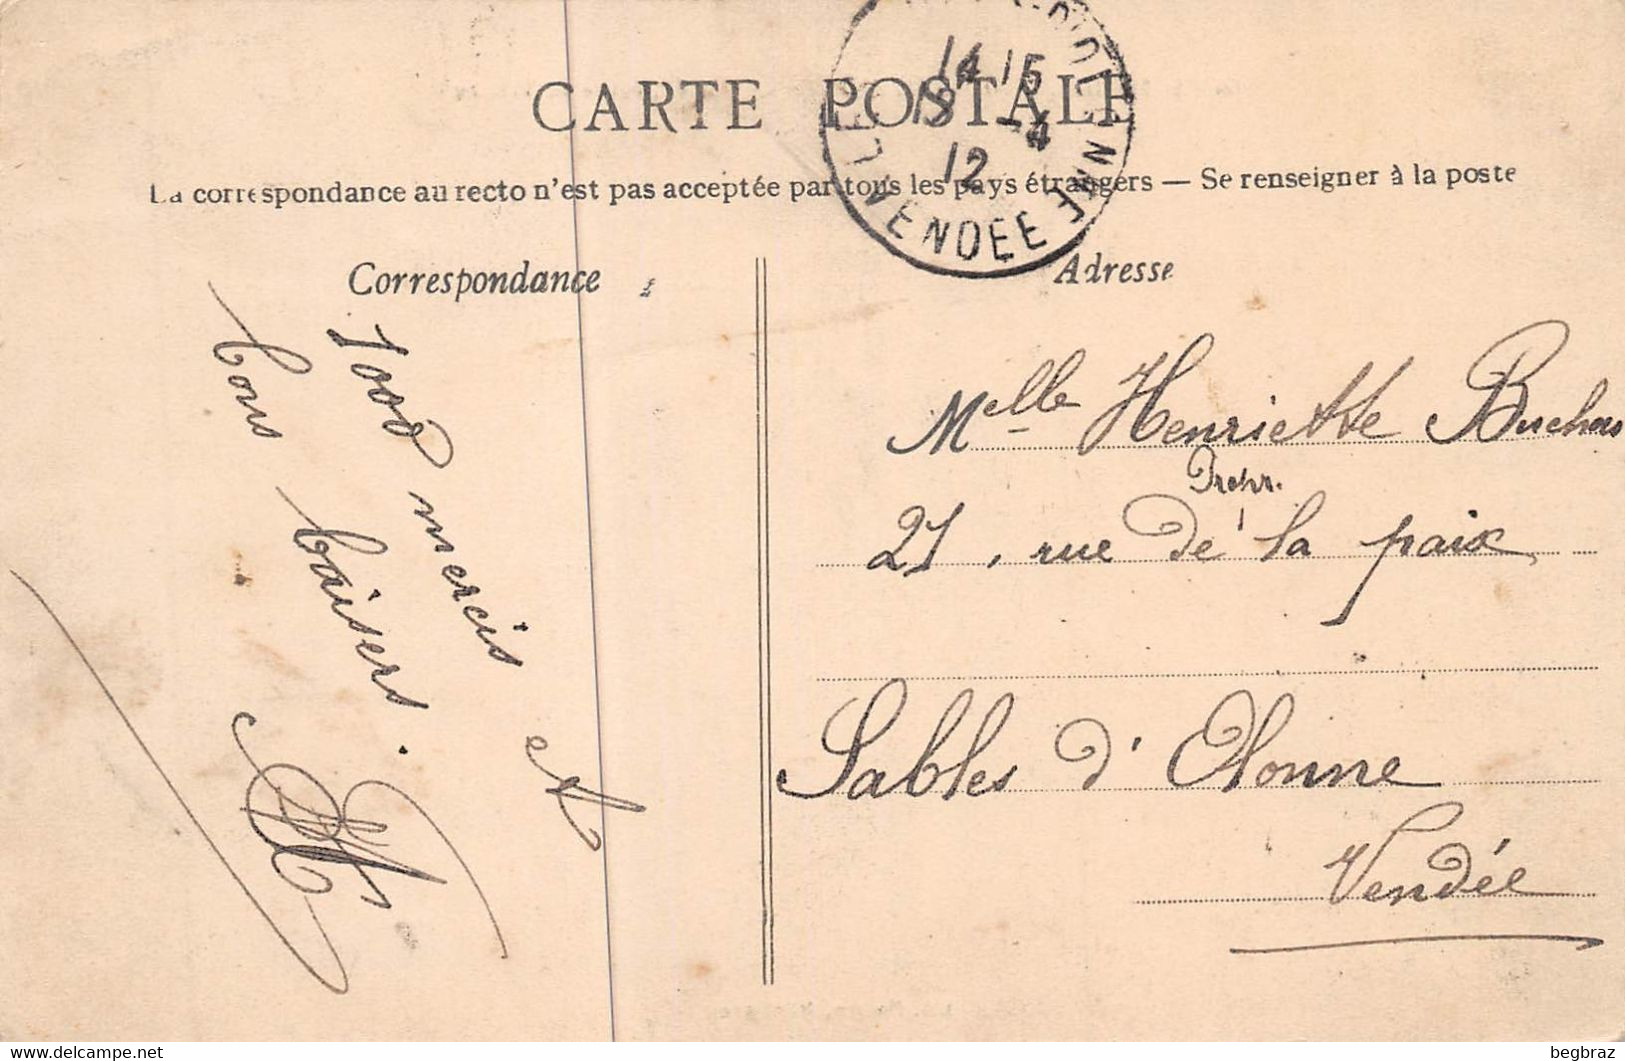 CARTE POSTALE
14 15
19 -4
12
VENDEE
La correspondance au recto n'est pas acceptée par tous les pays étrangers — Se renseigner à la poste
Correspondance
Adresse
1000 mercis et
bons baisers.
Melle Henriette
Propr.
27, rue de la paix
Sables d'Olonne
Vendée
delcampe.net
begbraz